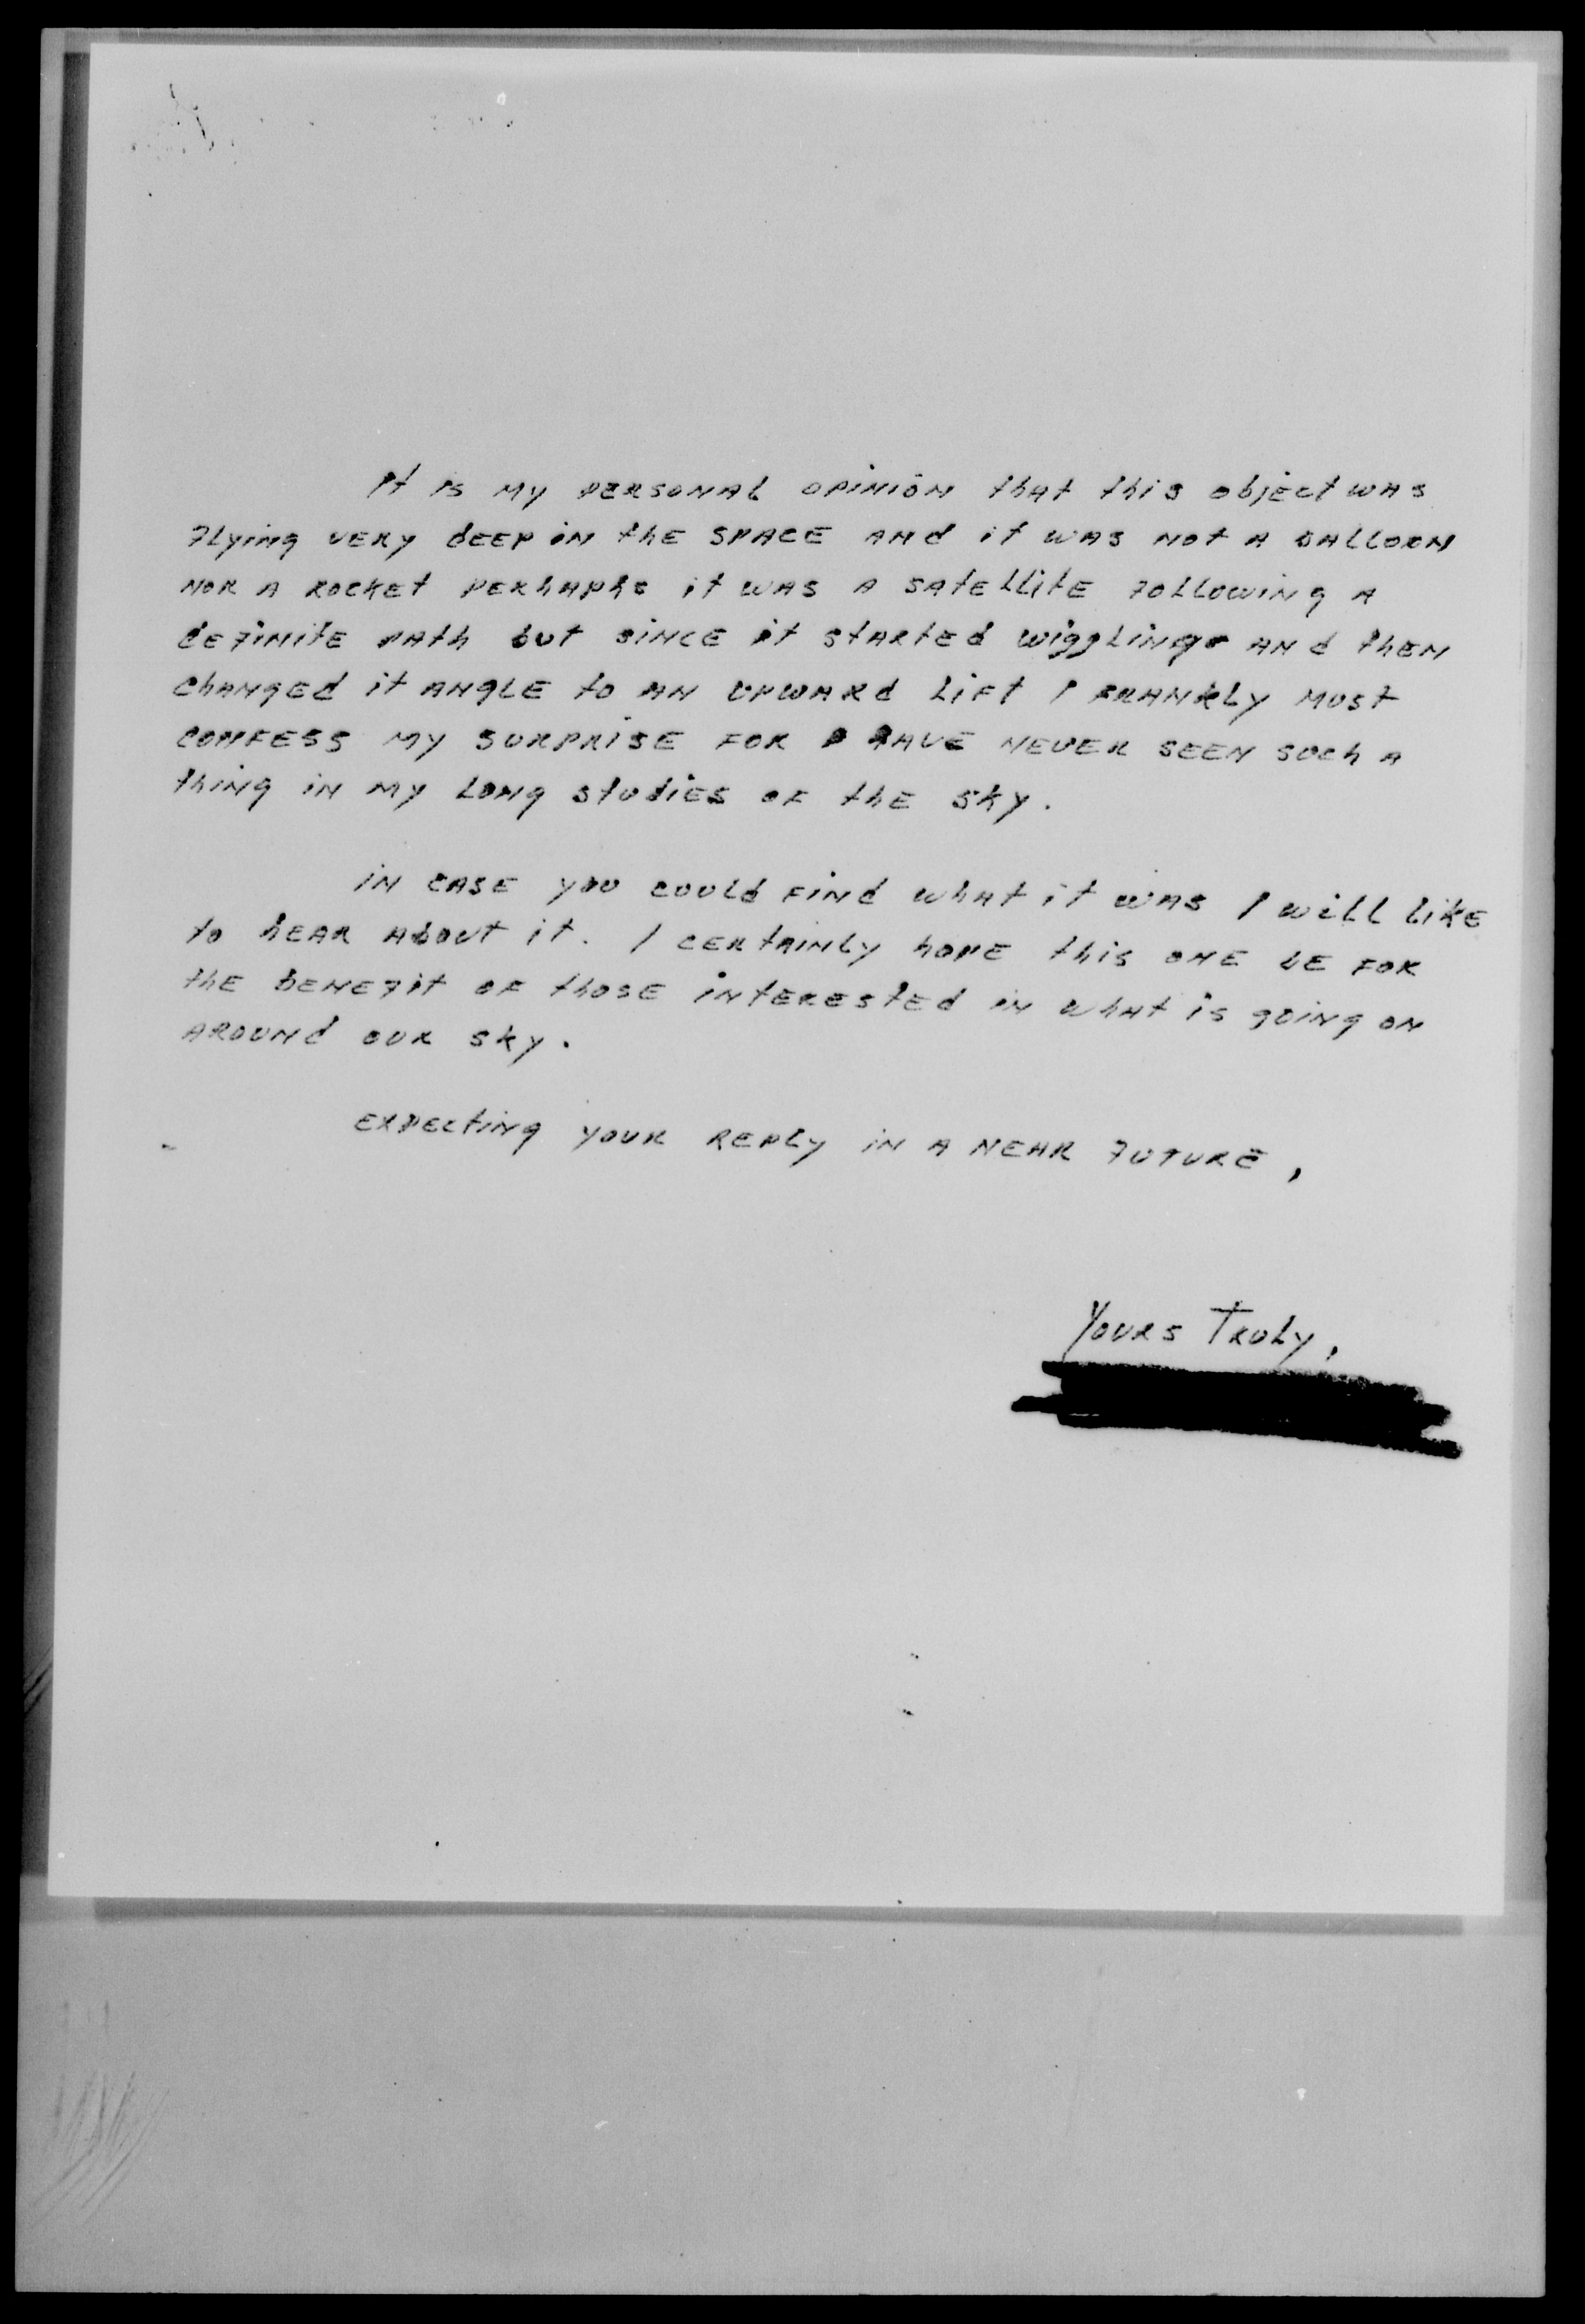 It is my personal opinion that this object was
flying very deep in the space and it was not a balloon
nor a rocket perhaphs it was a satellite following a
definite path but since it started wiggling and then
changed it angle to an upward lift I frankly must
confess my surprise for I have never seen such a
thing in my long studies of the sky.
in case you could find what it was I will like
to hear about it. I certainly hope this one be for
the benefit of those interested in what is going on
around our sky.
expecting your reply in a near future,
Yours Truly,